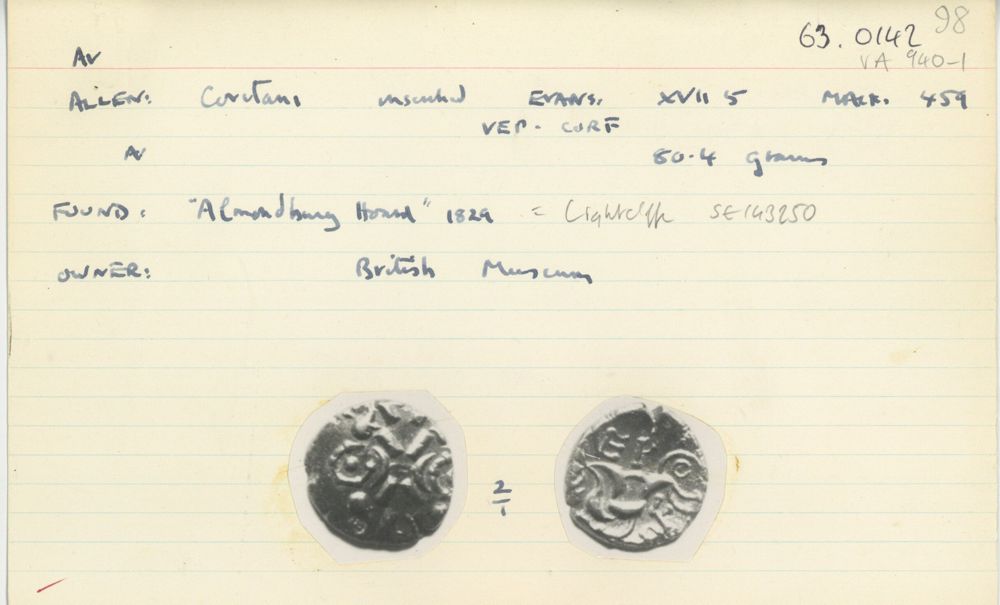 98
63.0142
VA 940-1
AV
ALLEN: Coritani inscribed EVANS. XVII 5 MACK. 459
VEP. CORF
AV 80.4 grams
FOUND: "Almondbury Hoard" 1829 = Lightcliffe SE143250
OWNER: British Museum
2/1